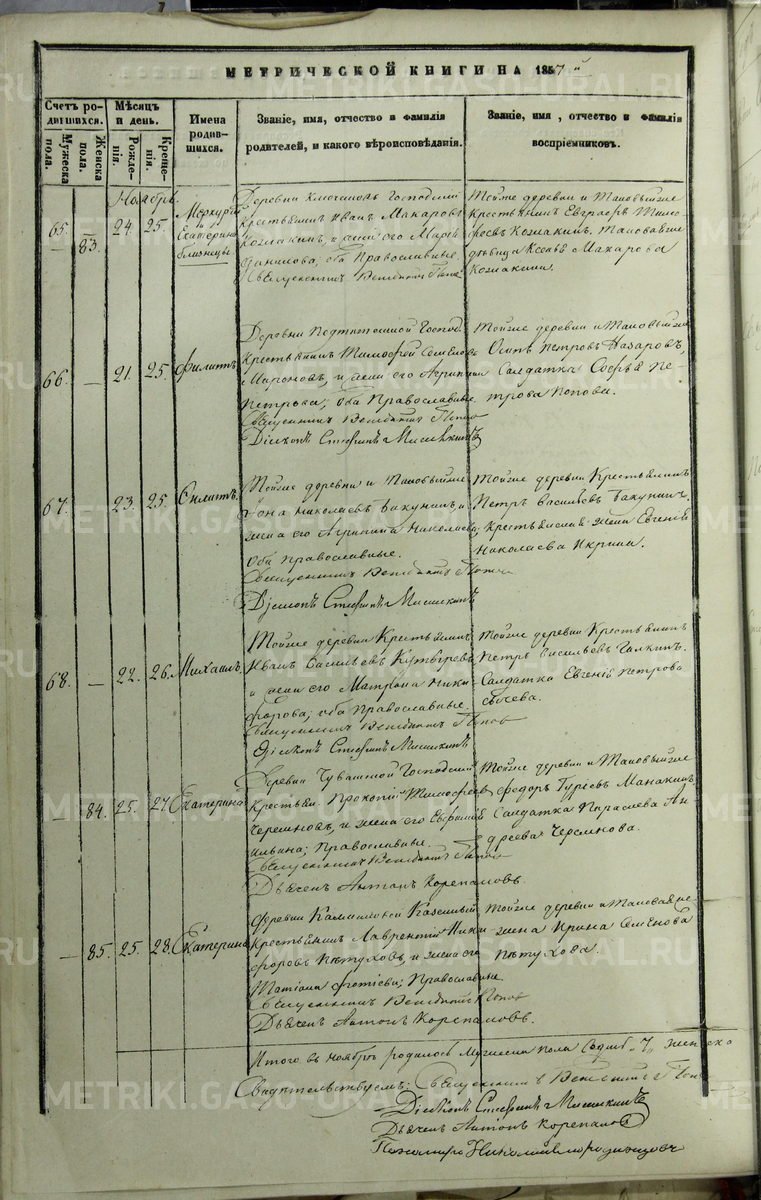 МЕТРИЧЕСКОЙ КНИГИ НА 1857й
Счетъ родившихся.
Мужеска пола.
Женска пола.
Мѣсяцъ и день.
Рожденія.
Крещенія.
Имена родившихся.
Званіе, имя, отчество и фамилія
родителей, и какого вѣроисповѣданія.
Званіе, имя, отчество и фамилія
воспріемниковъ.
Ноябрь
65. 83. 24. 25.
Меркурій и Екатерина близнецы
Деревни Господскій
крестьянинъ Иванъ Макаровъ
Козмакинъ, и жена его Марья
Данилова, оба Православные.
Священникъ Венедиктъ Поповъ
Тойже деревни и
крестьянинъ Евграфъ Тимо-
феевъ Козмакинъ.
дѣвица Ксенья Макарова
Козмакина.
66. — 21. 25. Филиппъ.
Деревни Господ.
крестьянинъ Тимофей Семеновъ
Мироновъ, и жена его Агрипина
Петрова; оба Православные.
Священникъ Венедиктъ Поповъ
Діаконъ Стефанъ Мишкинъ
Тойже деревни и
Осипъ Петровъ Назаровъ,
Солдатка Софья Пе-
трова Попова.
67. — 23. 25. Филиппъ.
Тойже деревни и
Іона Николаевъ Бакунинъ, и
жена его Агрипина Николаева
Оба Православные.
Священникъ Венедиктъ Поповъ
Діаконъ Стефанъ Мишкинъ
Тойже деревни Крестьянинъ
Петръ Васильевъ Бакунинъ.
жена Евгенія
Николаева Икрина.
68. — 22. 26. Михаилъ.
Тойже деревни Крестьянинъ
Иванъ Васильевъ
и жена его Матрона Ники-
форова; оба Православные.
Священникъ Венедиктъ Поповъ
Діаконъ Стефанъ Мишкинъ
Тойже деревни Крестьянинъ
Петръ Васильевъ Галкинъ.
Солдатка Евгенія Петрова
— 84. 25. 27. Екатерина
Деревни Чувашкой Господскій
крестьян. Прокопій Тимофеевъ
Черемновъ, и жена его Евфимія
Ильина; Православные.
Священникъ Венедиктъ Поповъ
Дьячекъ Антонъ Корепановъ.
Тойже деревни и
Федоръ Гурьевъ Манакинъ
Солдатка Параскева Ан-
дреева Черемнова.
— 85. 25. 28. Екатерина
Деревни Казенный
Крестьянинъ Лаврентій Ники-
форовъ Пѣтуховъ, и жена его
Татіана Фотіева; Православные
Священникъ Венедиктъ Поповъ
Дьячекъ Антонъ Корепановъ.
Тойже деревни и
жена Ирина Семенова
Пѣтухова.
Итого въ ноябрѣ родилось Мужеска пола женска
Свидѣтельствуемъ: Священникъ Венедиктъ Поповъ
Діаконъ Стефанъ Мишкинъ
Дьячекъ Антонъ Корепановъ
Пономарь Николай
METRIKI.GASO-URAL.RU